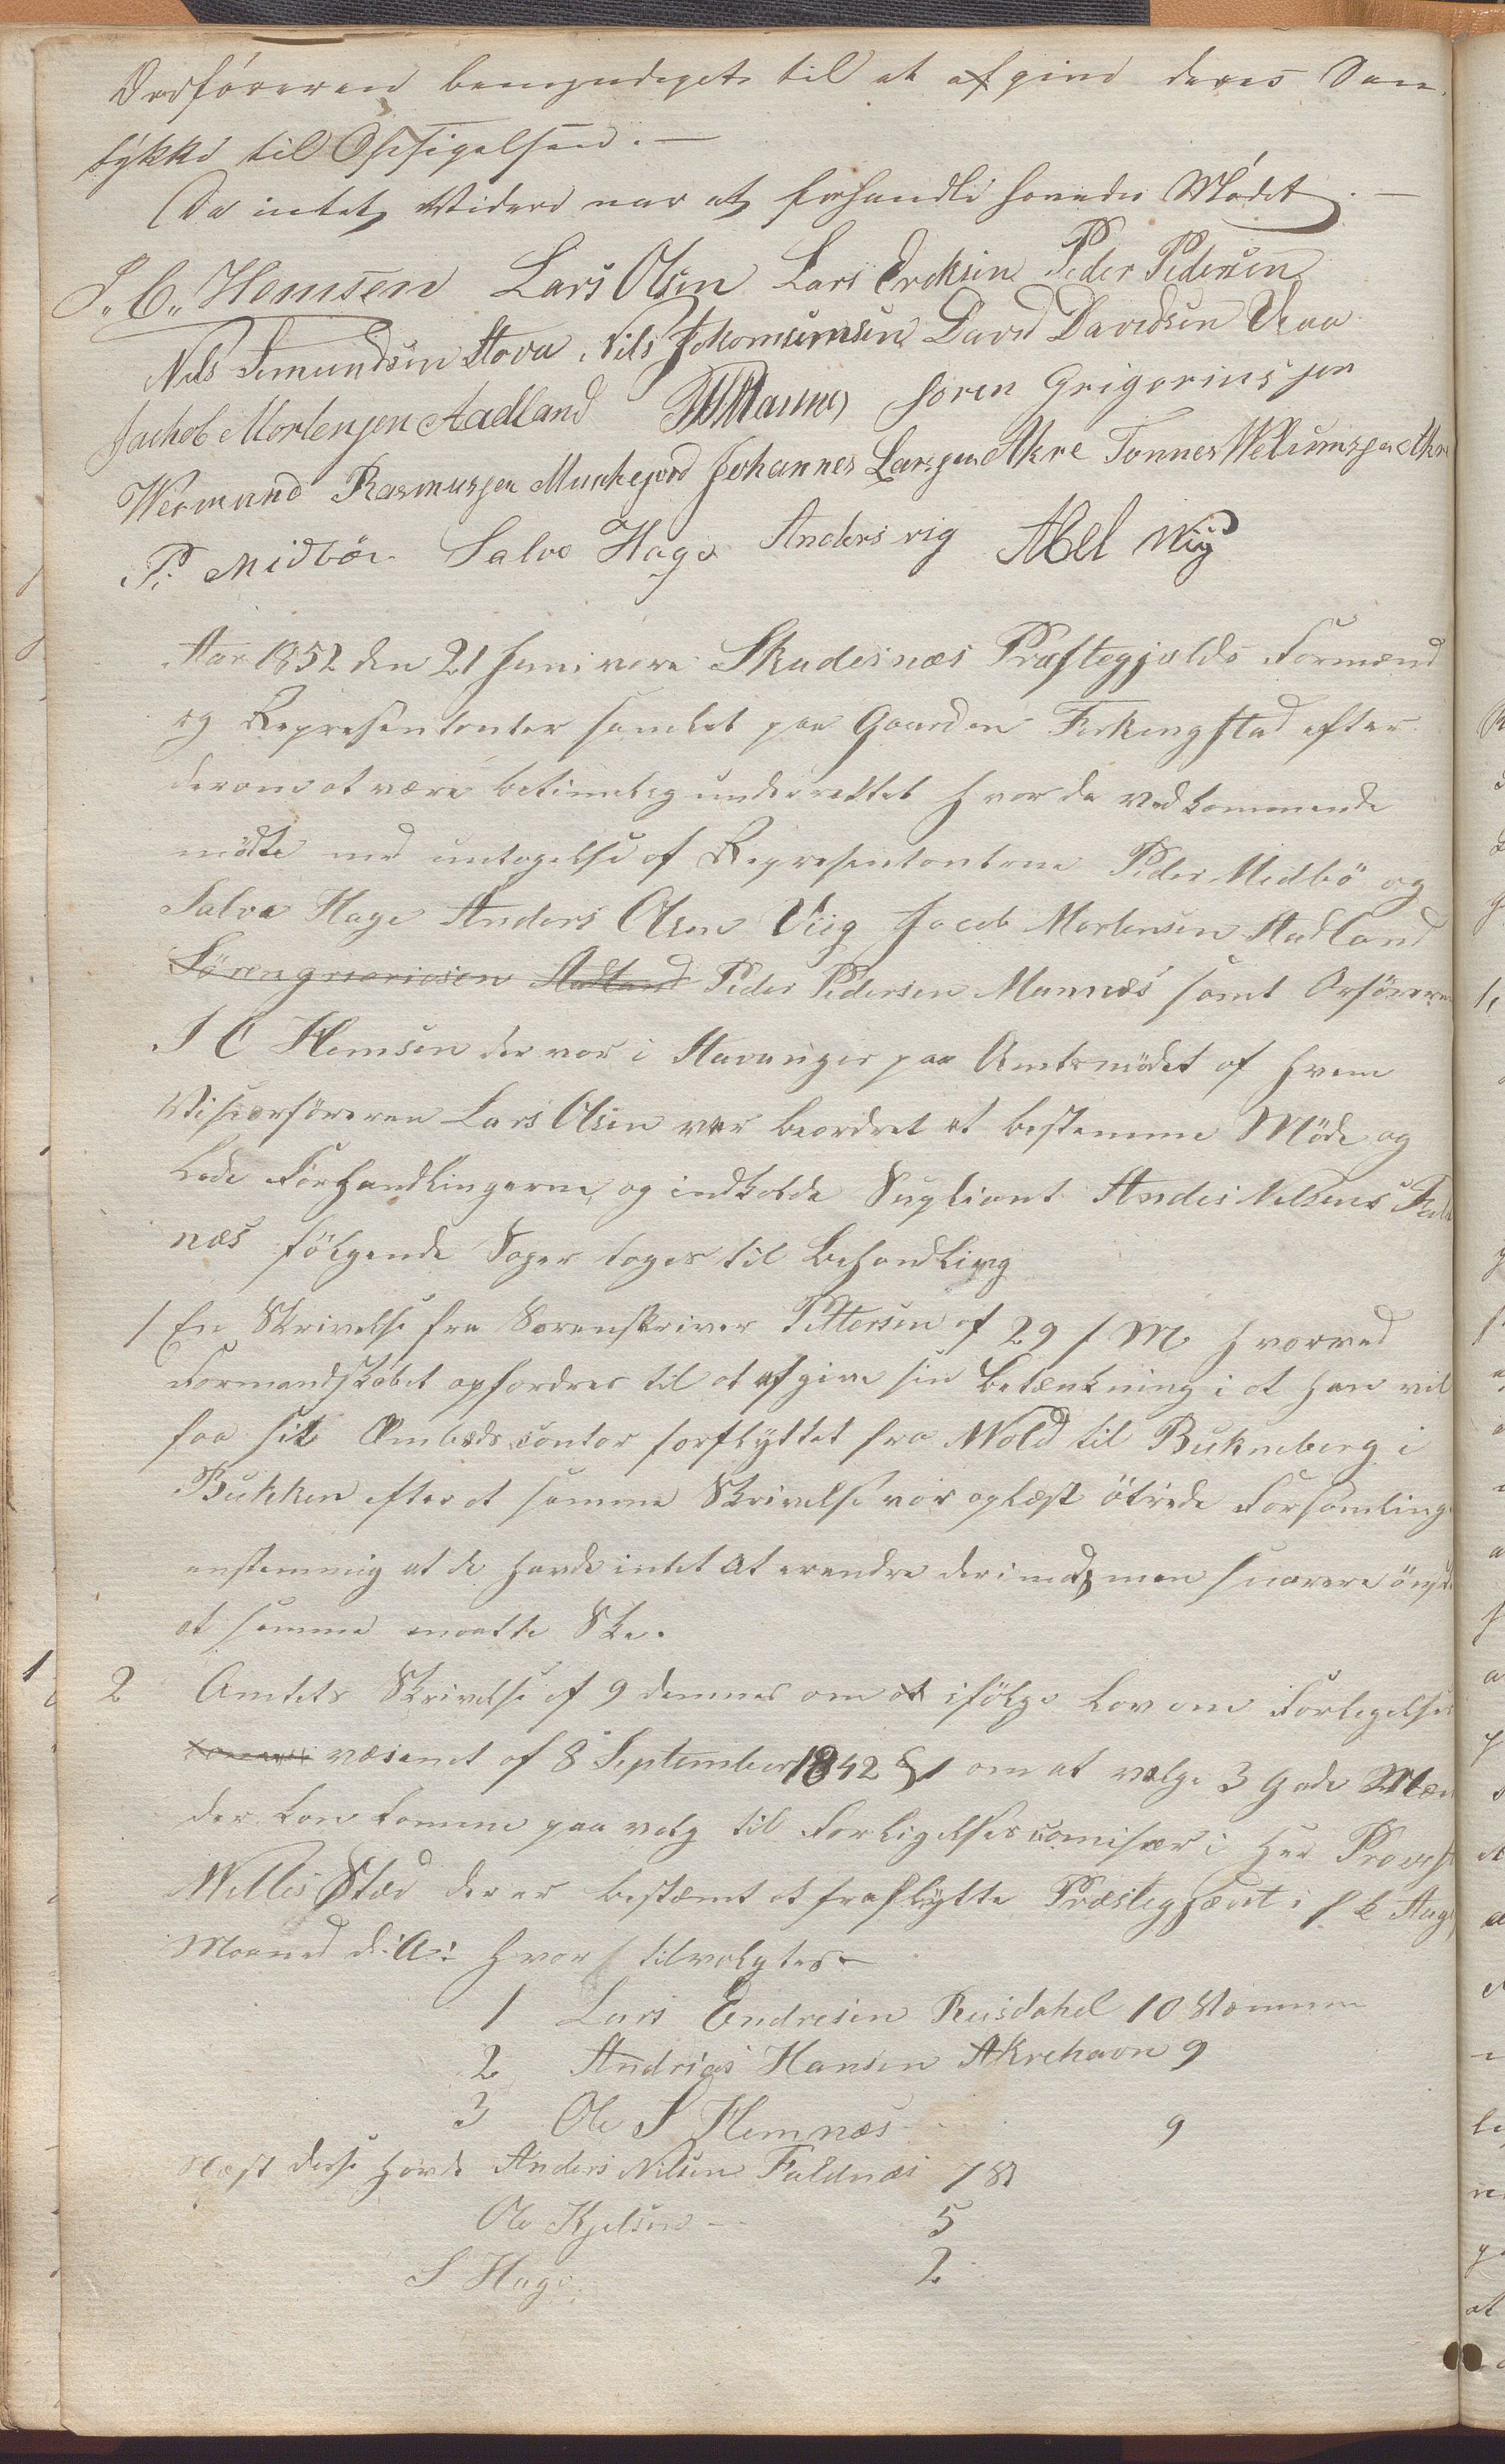 Ordføreren bemyndiges til at afgive deres Sam
tykke til Opsigelsen. —
Da intet Videre var at forhandle hævedes Mødet. —
J. C. Hemsen Lars Olsen Lars Ericksen Peder Pedersen
Nels Simundsen Stova Nils Johannesen David Davidsen Vaa
Jachob Mortensen Aadland Søren Grigoriussen
Wermund Rasmussen Munkejord Johannes Larssen Akre Tønnes Akre
P. Midbøe Salve Hage Anders vig Abel Wiig
Aar 1852 den 21 Juni vare Skudesnæs Præstegjælds Formænd
og Representanter samlet paa Gaarden Ferkingstad efter
derom at være betimelig underrettet hvor da vedkommende
mödte med untagelse af Representantene Peder Medbö og
Salve Hage Anders Olsen Viig Jacob Mortensen Aadland
Sörengrioriesen Aadland Peder Pedersen Mannæs samt Orföreren
J C Hemsen der var i Stavanger paa Amtsmödet af hvem
Viseorföreren Lars Olsen var beordret at bestemme Möde og
Lede Forhandlingerne, og indkalde Supliant Andes Nelsens Fald
næs fölgende Sager toges til Behandling
1 En Skrivelse fra Sorenskriver Pettersen af 29 f M hvorved
Formandskabet opfordres til at afgive sin Betænkning i at han vil
faa sit Embedscontor forflyttet fra Wold til Bukneberg i
Bukken efter at samme Skrivelse var oplæst ötrede Forsamling
enstemmig at de havde intet at erendre derimod, men snarere önsk
at samme maatte Ske.
2 Amtets Skrivelse af 9 dennes om at ifölge Lov om Forlegelses
væsenet af 8 September 1842 § 1 om at vælge 3 Gode Mæn
der kan komme paa valg til Forligelsescomisær i Her Provst
Nilles Stæd der er bestæmt at fraflytte Præstegjældet i f k Aug
Maaned d: A: hvor tilvalgtes —
1 Lars Endresen Reisdahel 10 Stemmer
2 Andrias Hansen Akrehavn 9
3 Ole S Hemnæs 9
Næst disse havde Anders Nilsen Faldnæs 7 St
Ole Kjelsen — 5
S Hage 2